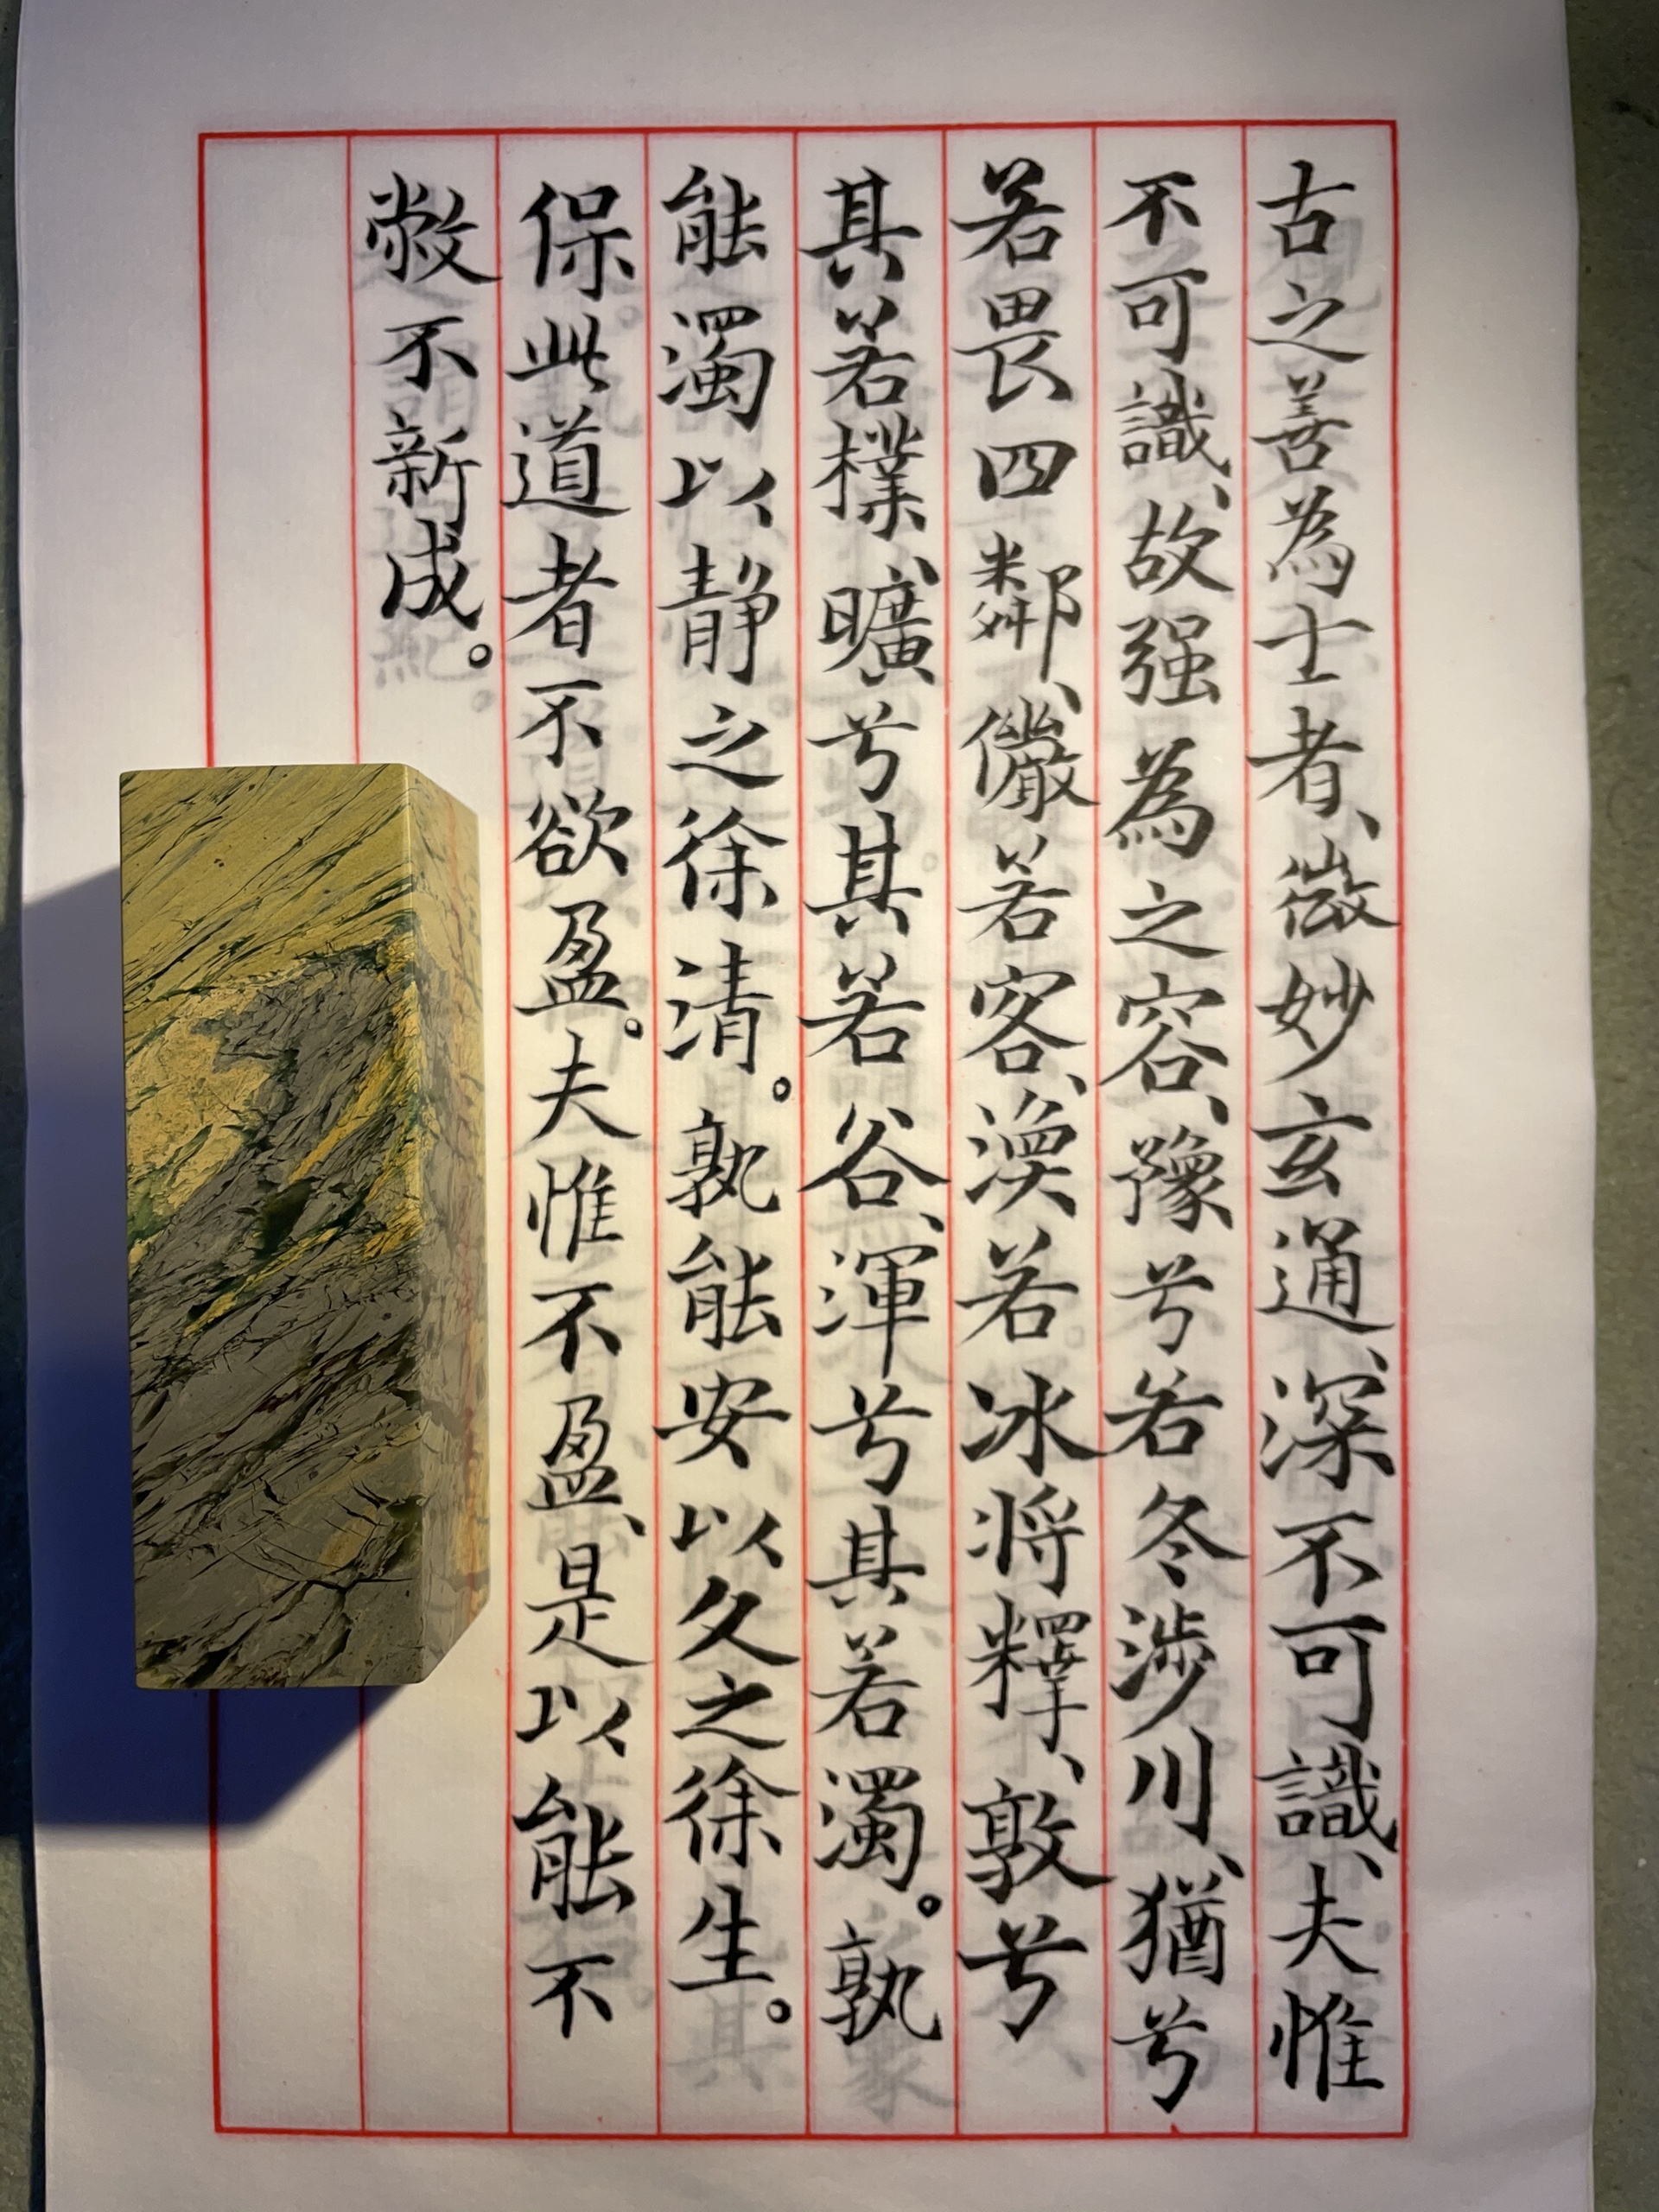 古之善為士者、微妙玄通、深不可識、夫惟
不可識、故强為之容、豫兮若冬涉川、猶兮
若畏四鄰、儼若客、渙若冰將釋、敦兮
其若樸、曠兮其若谷、渾兮其若濁。孰
能濁以靜之徐清。孰能安以久之徐生。
保此道者不欲盈。夫惟不盈、是以能不
敝不新成。